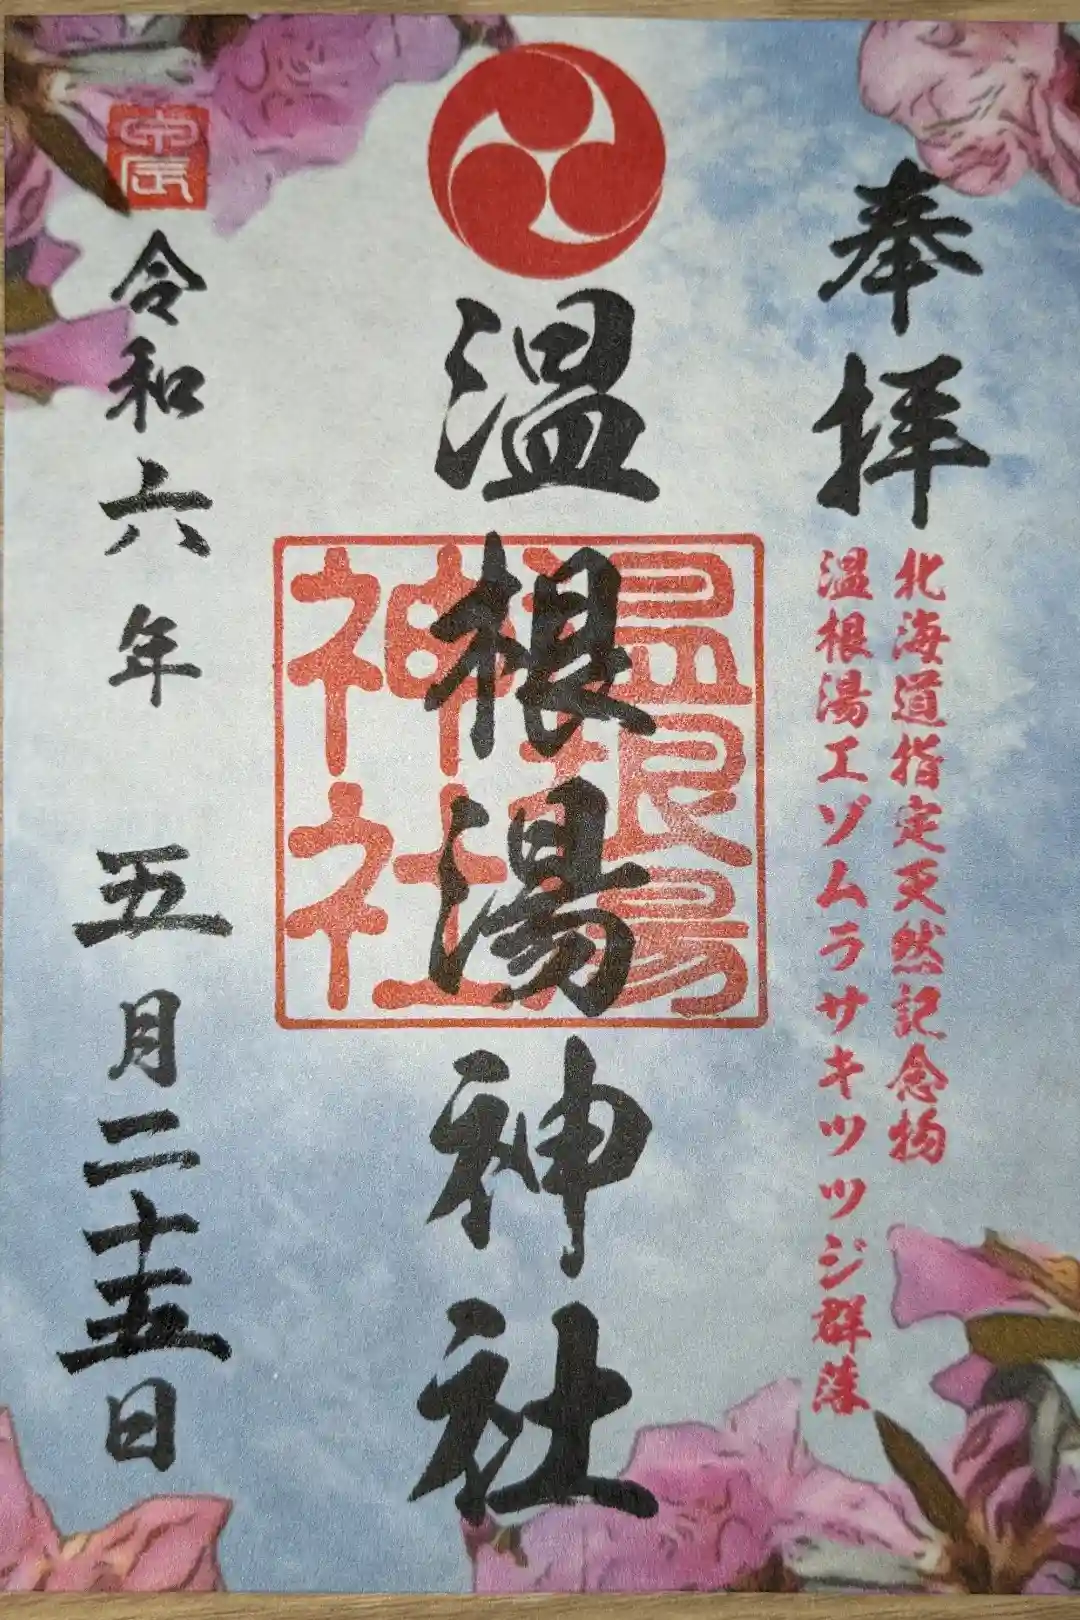 奉拝
北海道指定天然記念物
温根湯エゾムラサキツツジ群落
温根湯神社
温根湯
神社
甲辰
令和六年 五月二十五日